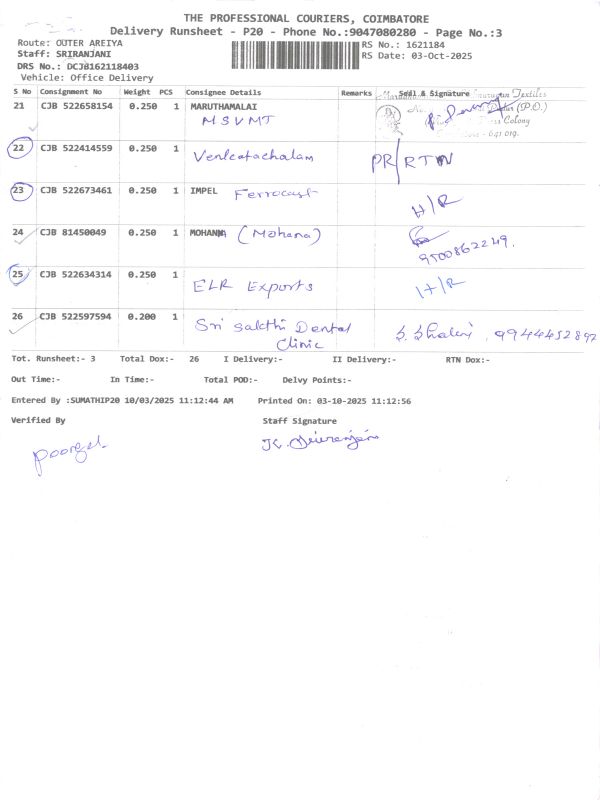 THE PROFESSIONAL COURIERS, COIMBATORE
Delivery Runsheet - P20 - Phone No.:9047080280 - Page No.:3
Route: OUTER AREIYA
RS No.: 1621184
Staff: SRIRANJANI
RS Date: 03-Oct-2025
DRS No.: DCJB162118403
Vehicle: Office Delivery
S No Consignment No Weight PCS Consignee Details Remarks Seal & Signature
21 CJB 522658154 0.250 1 MARUTHAMALAI
MSVMT
Textiles
(P.O.)
Colony
641 019.
22 CJB 522414559 0.250 1 Venkatachalam PR/RTN
23 CJB 522673461 0.250 1 IMPEL Ferrocast H/R
24 CJB 81450049 0.250 1 MOHANA (Mohana)
9500862249.
25 CJB 522634314 0.250 1 ELR Exports H/R
26 CJB 522597594 0.200 1 Sri Sakthi Dental
Clinic
S. Shalini, 9944452897
Tot. Runsheet:- 3 Total Dox:- 26 I Delivery:- II Delivery:- RTN Dox:-
Out Time:- In Time:- Total POD:- Delvy Points:-
Entered By :SUMATHIP20 10/03/2025 11:12:44 AM Printed On: 03-10-2025 11:12:56
Verified By Staff Signature